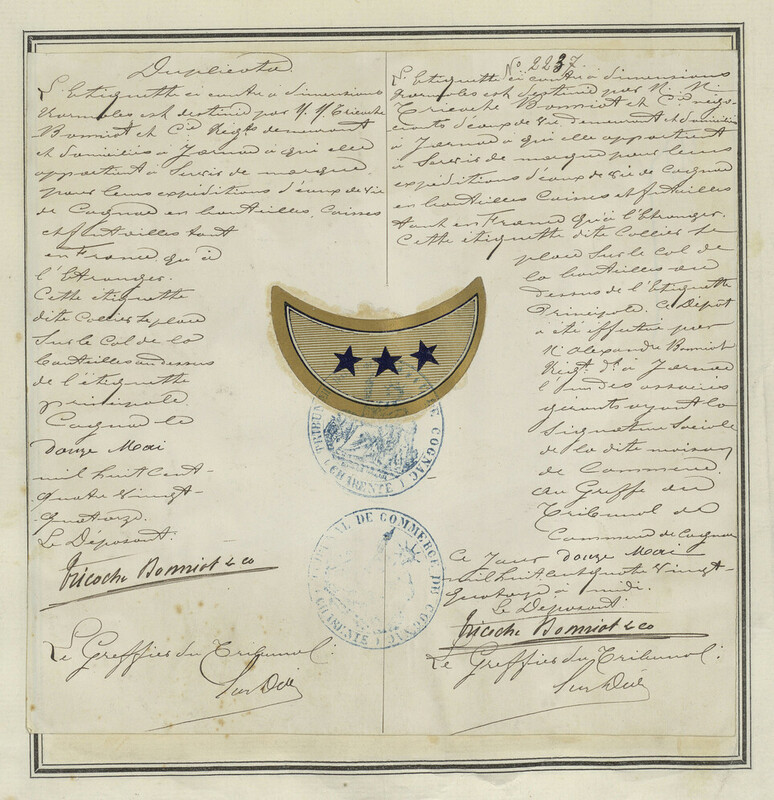 Duplicata
L'Etiquette ci contre à dimensions
normales est destinée par M. M. Tricoche
Bonniot et Cie Négts demeurant
et domiciliés à Jarnac à qui elle
appartient à Servir de marque
pour leurs expéditions d'eaux de vie
de Cognac en bouteilles, Caisses
et futailles tant
en France qu'à
l'Etranger.
Cette étiquette
dite Collier se place
Sur le Col de la
bouteille au dessus
de l'étiquette
principale.
Cognac le
douze Mai
mil huit cent
quatre vingt-
quatorze.
Le Déposant.
Tricoche Bonniot & co
Le Greffier du Tribunal:
No 2237.
L'Etiquette ci contre à dimensions
normales est destinée par M. M.
Tricoche Bonniot et Cie négo-
ciants d'eaux de vie demeurant et domiciliés
à Jarnac à qui elle appartient
à Servir de marque pour leurs
expéditions d'eaux de vie de Cognac
en bouteilles Caisses et futailles
tant en France qu'à l'Etranger.
Cette étiquette dite Collier se
place Sur le Col de
la bouteille au
dessus de l'Etiquette
Principale. Ce Dépôt
a été effectué par
M. Alexandre Bonniot
Négt. dt. à Jarnac
l'un des associés
gérants ayant la
Signature Sociale
de la dite maison
de Commerce
au Greffe du
Tribunal de
Commerce de Cognac
Ce Jour douze Mai
mil huit cent quatre vingt-
quatorze à midi.
Le Déposant.
Tricoche Bonniot & co
Le Greffier du Tribunal:
TRIBUNAL DE COMMERCE DE COGNAC
(CHARENTE)
TRIBUNAL DE COMMERCE DE COGNAC
(CHARENTE)